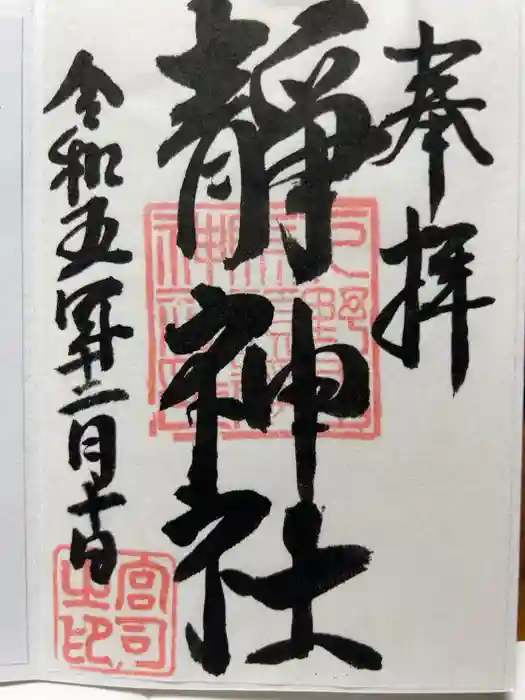 奉拝
靜神社
令和五年十二月十日
宮司之印